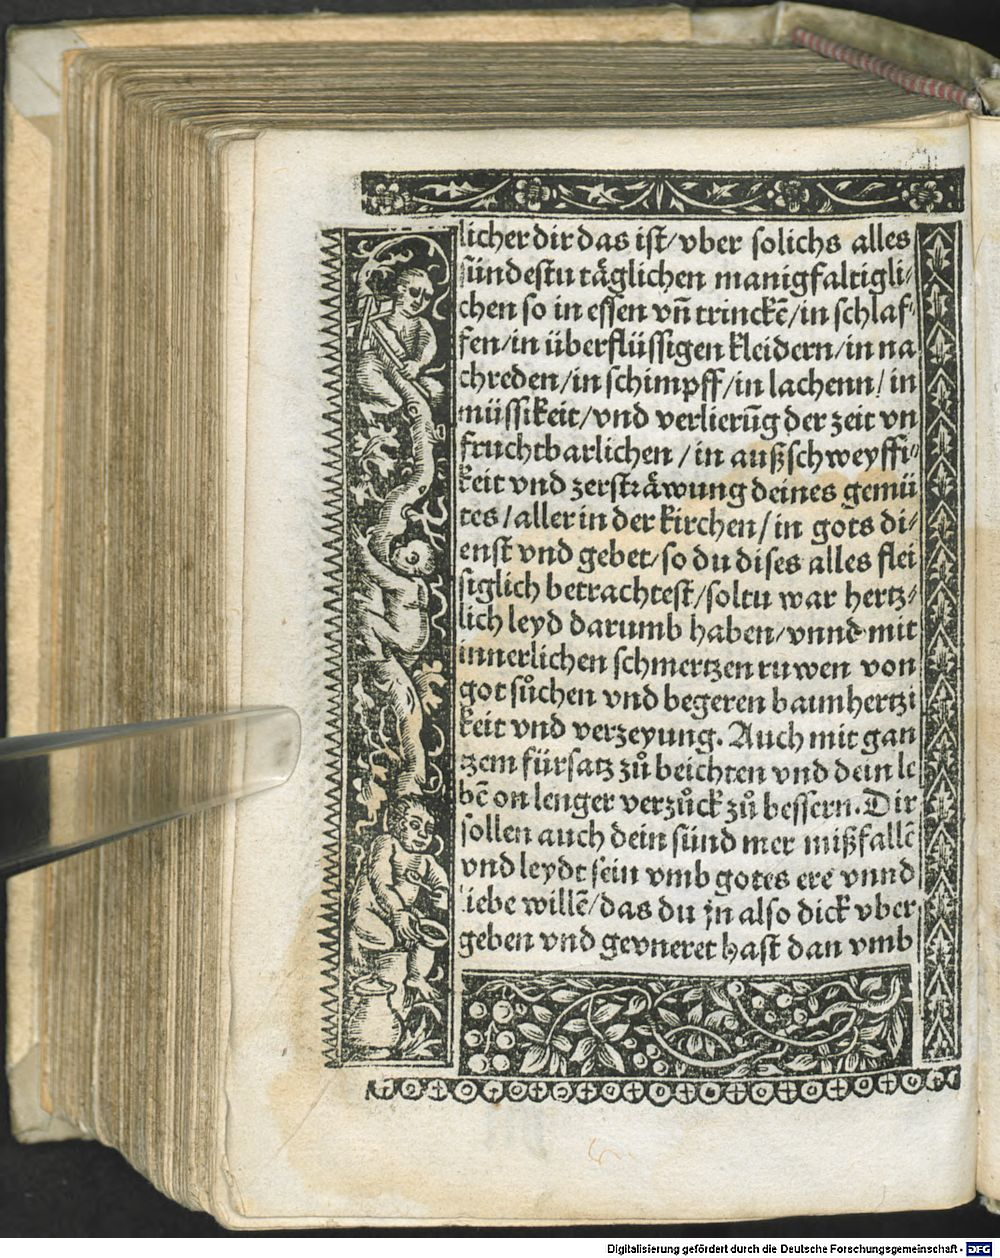 licher dir das ist/vber solichs alles
sündestu täglichen manigfaltigli⸗
chen so in essen vñ trinckẽ/in schlaf⸗
fen/in überflüssigen kleidern/in na
chreden/in schimpff/in lachenn/in
müssikeit/vnd verlierũg der zeit vn
fruchtbarlichen/in außschweyffi⸗
keit vnd zerströwung deines gemü
tes/aller in der kirchen/in gots di⸗
enst vnd gebet/so du dises alles flei
siglich betrachtest/soltu war hertz⸗
lich leyd darumb haben/vnnd mit
innerlichen schmertzen ruwen von
got sůchen vnd begeren barmhertzi
keit vnd verzeyung. Auch mit gan
tzem fürsatz zů beichten vnd dein le
bẽ on lenger verzůck zů bessern. Dir
sollen auch dein sünd mer mißfallẽ
vnd leydt sein vmb gotes ere vnnd
liebe willẽ/das du jn also dick vber
geben vnd gevneret hast dan vmb
Digitalisierung gefördert durch die Deutsche Forschungsgemeinschaft - DFG